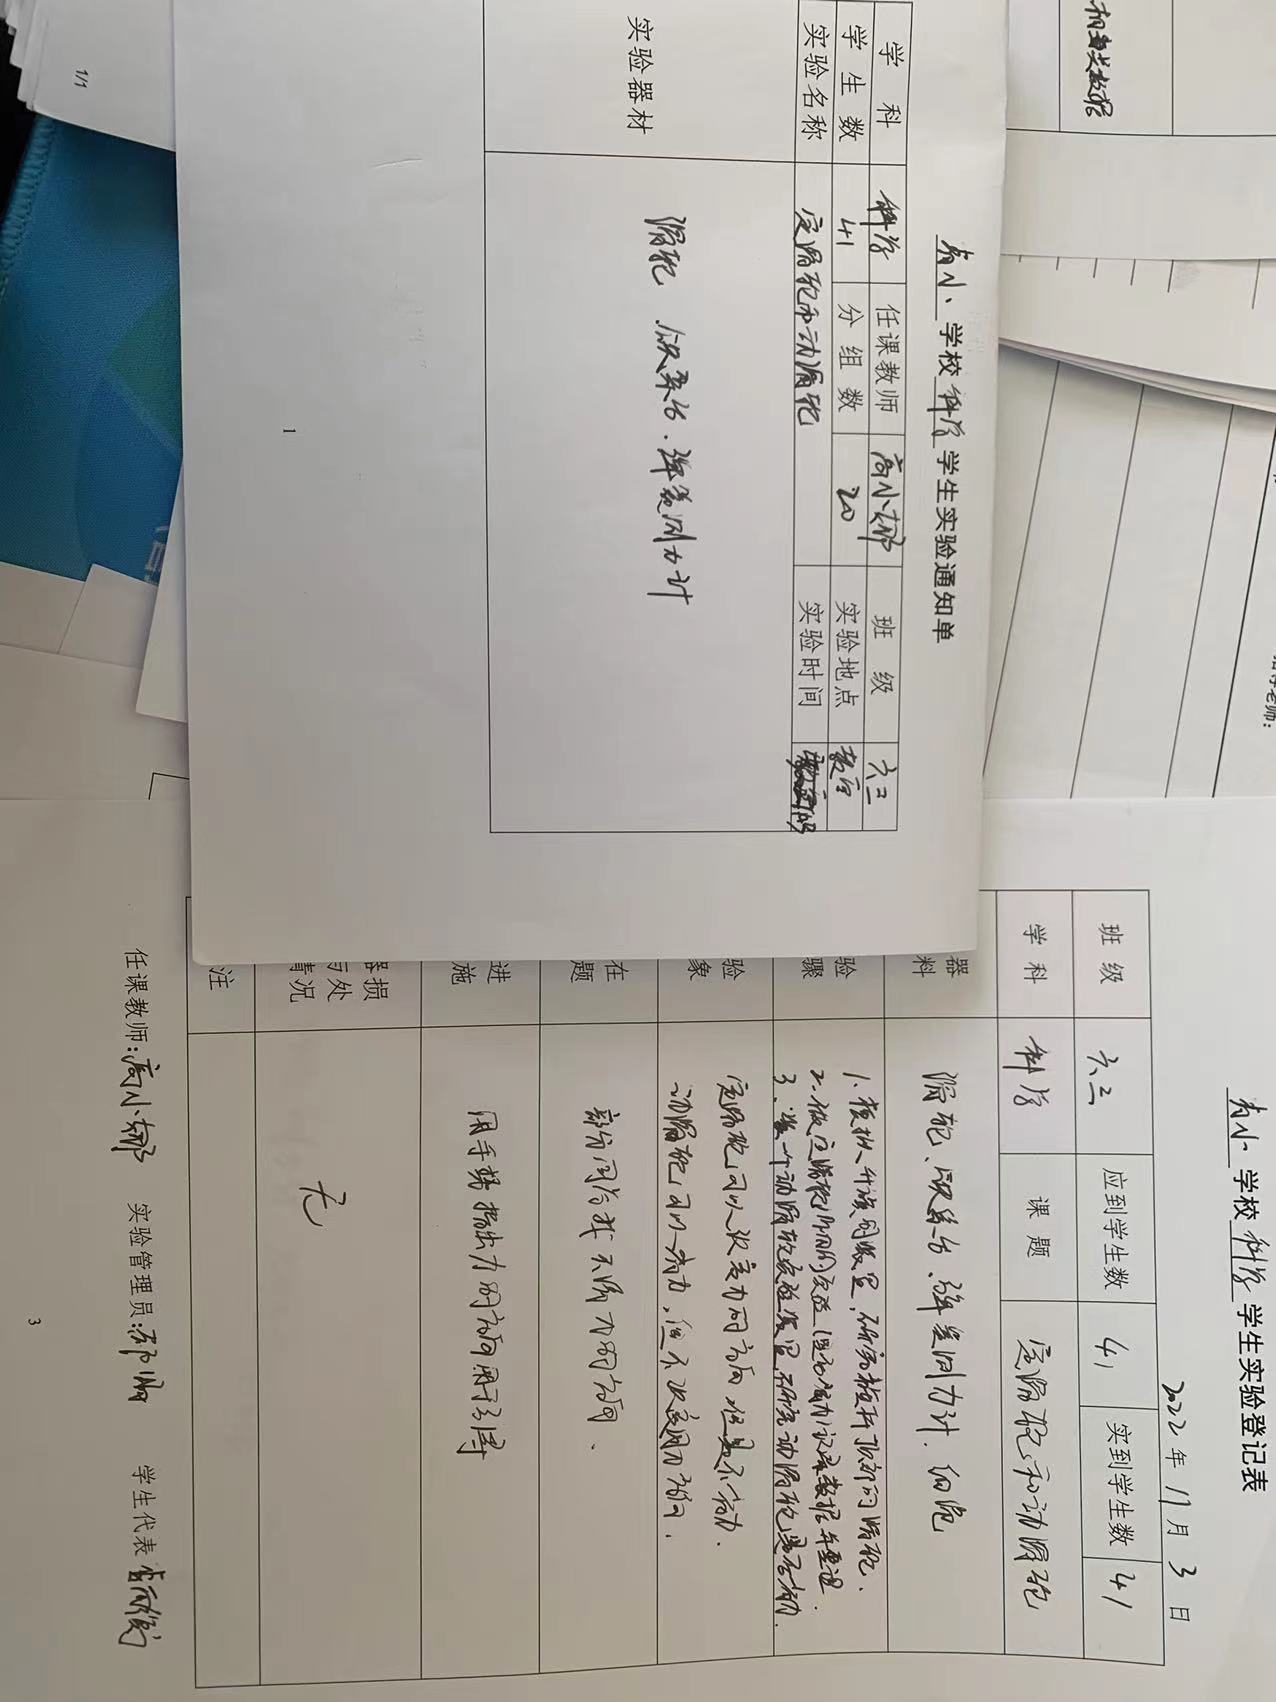 学校科学学生实验通知单
学科 科学 任课教师 高小娜 班级 六二
学生数 41 分组数 20 实验地点 教室
实验名称 定滑轮和动滑轮 实验时间
实验器材
滑轮、铁架台、弹簧测力计
1
学校科学学生实验登记表
2022年11月3日
班级 六二 应到学生数 41 实到学生数 41
学科 科学 课题 定滑轮和动滑轮
器
料
滑轮、铁架台、弹簧测力计、钩码
验
骤
1.模拟升旗的装置,研究旗杆顶部的滑轮.
2.做定滑轮 的实验 是否省力 记录数据并整理.
3. 一个动滑轮实验装置,研究动滑轮是否省力.
验
象
定滑轮可以改变力的方向,但是不省力.
动滑轮可以省力,但不改变用力方向.
在
题
部分同学找不清力的方向.
进
施
用手势指出力的方向用于引导
器损
与处
情况
无
注
任课教师:高小娜 实验管理员: 学生代表
3
1/1